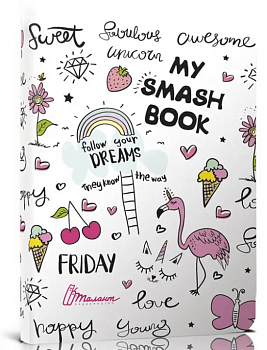 Sweet
fabulous
awesome
unicorn
MY
SMASH
BOOK
follow your
DREAMS
they know the way
FRIDAY
Талант
love
happy
young
happy